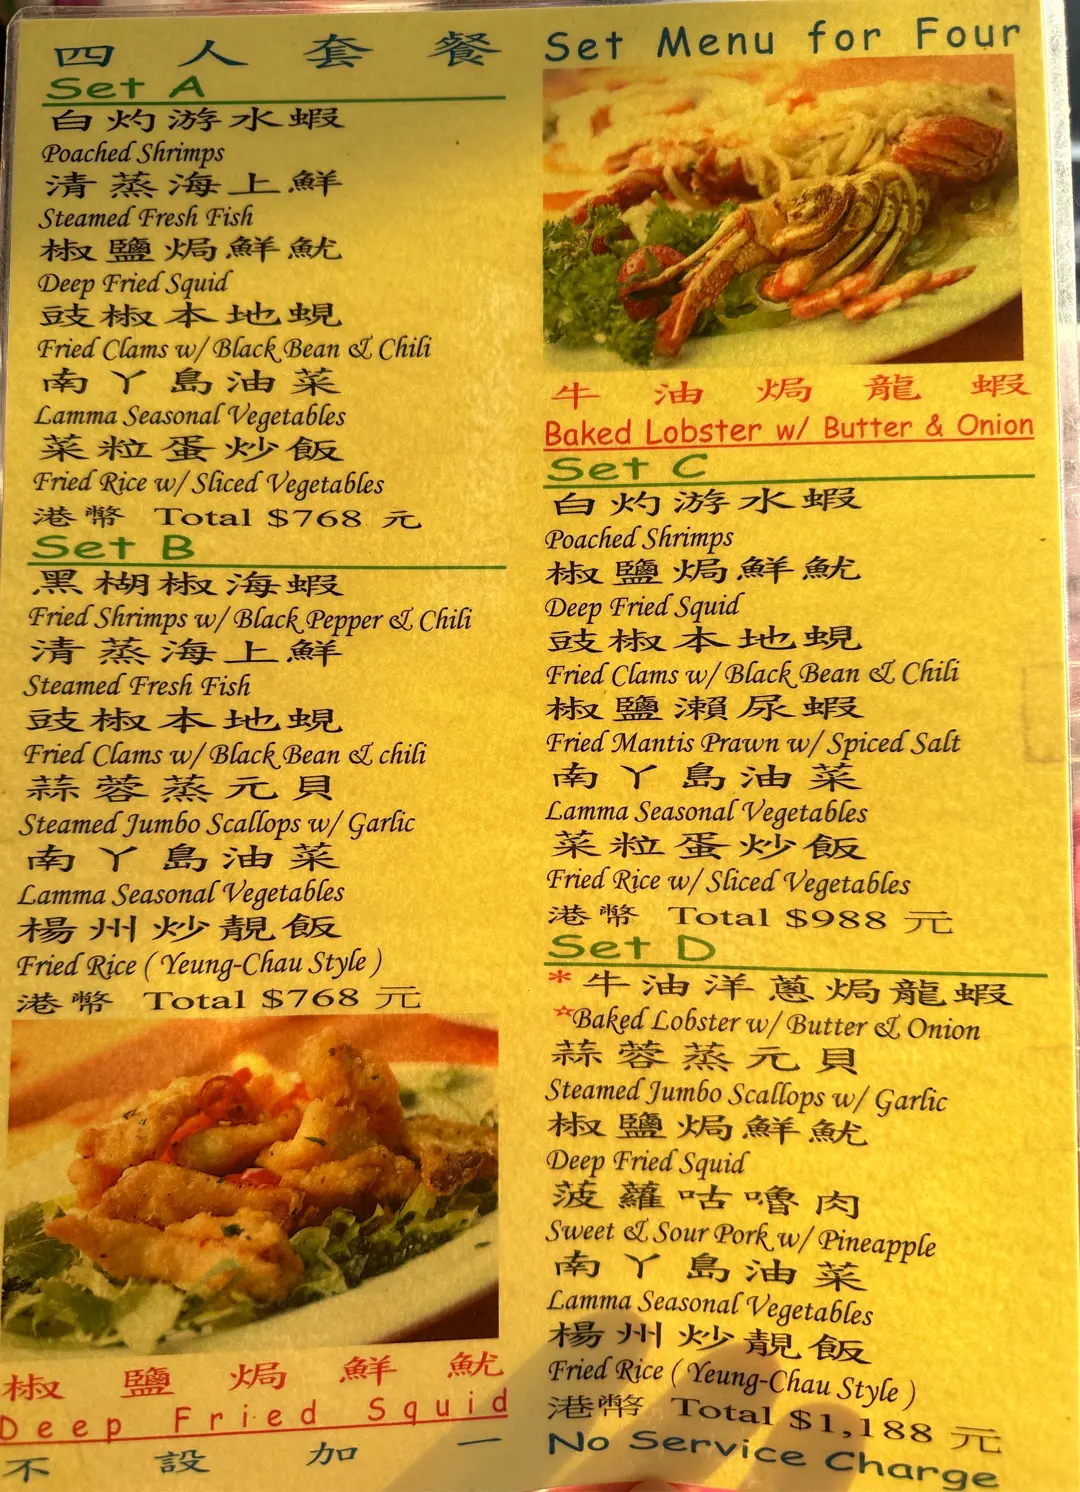 四人套餐 Set Menu for Four
Set A
白灼游水蝦
Poached Shrimps
清蒸海上鮮
Steamed Fresh Fish
椒鹽焗鮮魷
Deep Fried Squid
豉椒本地蜆
Fried Clams w/ Black Bean & Chili
南丫島油菜
Lamma Seasonal Vegetables
菜粒蛋炒飯
Fried Rice w/ Sliced Vegetables
港幣 Total $768 元
Set B
黑楜椒海蝦
Fried Shrimps w/ Black Pepper & Chili
清蒸海上鮮
Steamed Fresh Fish
豉椒本地蜆
Fried Clams w/ Black Bean & chili
蒜蓉蒸元貝
Steamed Jumbo Scallops w/ Garlic
南丫島油菜
Lamma Seasonal Vegetables
楊州炒靚飯
Fried Rice ( Yeung-Chau Style )
港幣 Total $768 元
椒鹽焗鮮魷
Deep Fried Squid
不設加一
牛油焗龍蝦
Baked Lobster w/ Butter & Onion
Set C
白灼游水蝦
Poached Shrimps
椒鹽焗鮮魷
Deep Fried Squid
豉椒本地蜆
Fried Clams w/ Black Bean & Chili
椒鹽瀨尿蝦
Fried Mantis Prawn w/ Spiced Salt
南丫島油菜
Lamma Seasonal Vegetables
菜粒蛋炒飯
Fried Rice w/ Sliced Vegetables
港幣 Total $988 元
Set D
*牛油洋蔥焗龍蝦
*Baked Lobster w/ Butter & Onion
蒜蓉蒸元貝
Steamed Jumbo Scallops w/ Garlic
椒鹽焗鮮魷
Deep Fried Squid
菠蘿咕嚕肉
Sweet & Sour Pork w/ Pineapple
南丫島油菜
Lamma Seasonal Vegetables
楊州炒靚飯
Fried Rice ( Yeung-Chau Style )
港幣 Total $1,188 元
No Service Charge